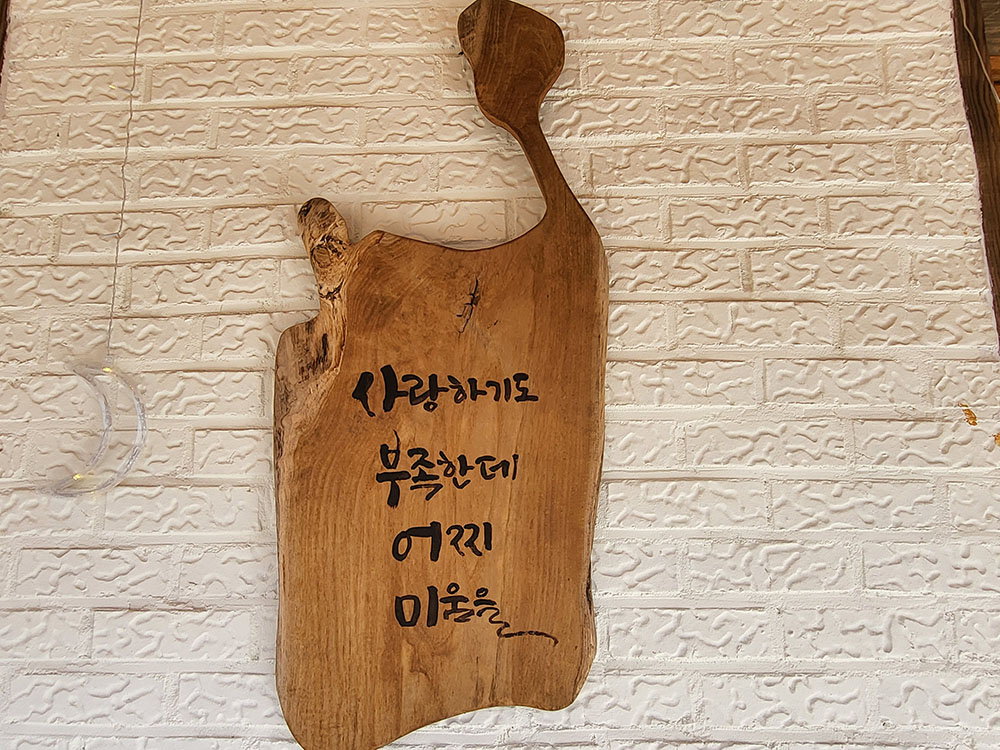 사랑하기도
부족한데
어찌
미움을